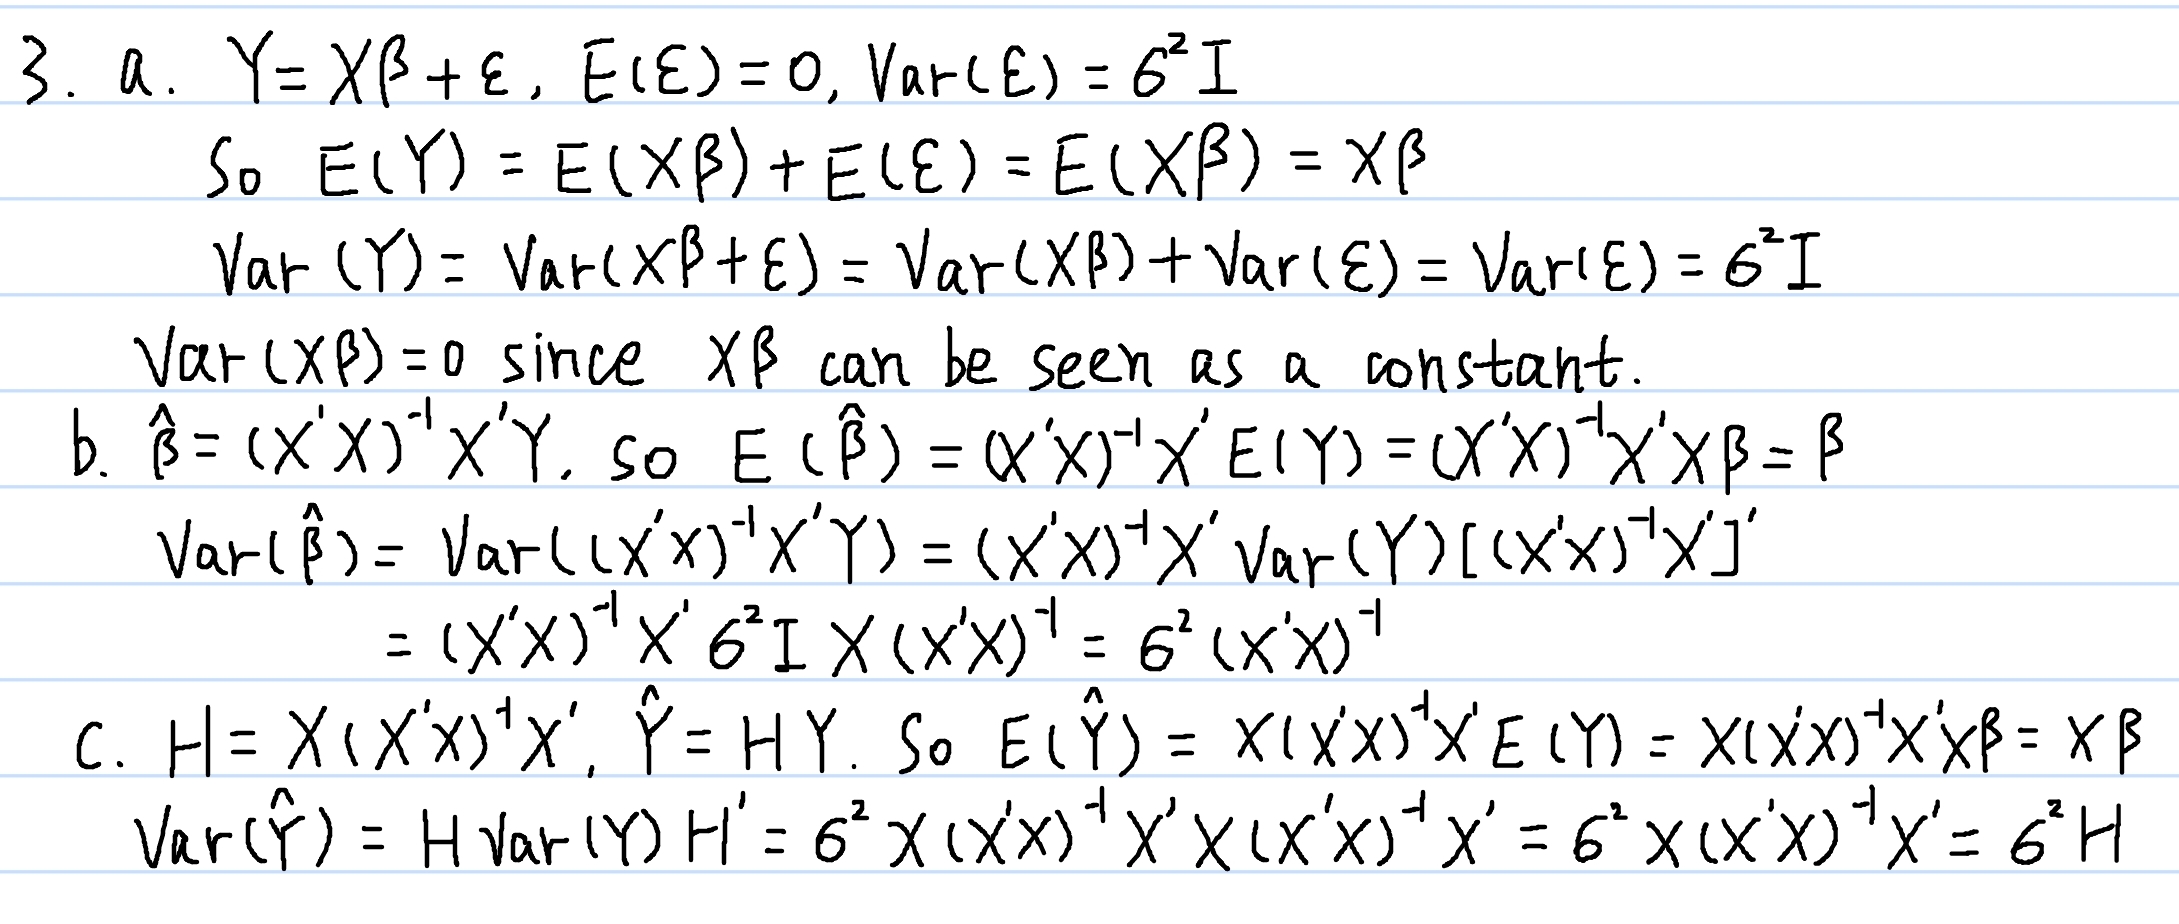 3. a. Y = Xβ + ε, E(ε) = 0, Var(ε) = σ²I
So E(Y) = E(Xβ) + E(ε) = E(Xβ) = Xβ
Var(Y) = Var(Xβ + ε) = Var(Xβ) + Var(ε) = Var(ε) = σ²I
Var(Xβ) = 0 since Xβ can be seen as a constant.
b. β̂ = (X'X)⁻¹X'Y. So E(β̂) = (X'X)⁻¹X'E(Y) = (X'X)⁻¹X'Xβ = β
Var(β̂) = Var((X'X)⁻¹X'Y) = (X'X)⁻¹X'Var(Y)[(X'X)⁻¹X']'
= (X'X)⁻¹X'σ²I X(X'X)⁻¹ = σ²(X'X)⁻¹
c. H = X(X'X)⁻¹X', Ŷ = HY. So E(Ŷ) = X(X'X)⁻¹X'E(Y) = X(X'X)⁻¹X'Xβ = Xβ
Var(Ŷ) = H Var(Y) H' = σ²X(X'X)⁻¹X'X(X'X)⁻¹X' = σ²X(X'X)⁻¹X' = σ²H